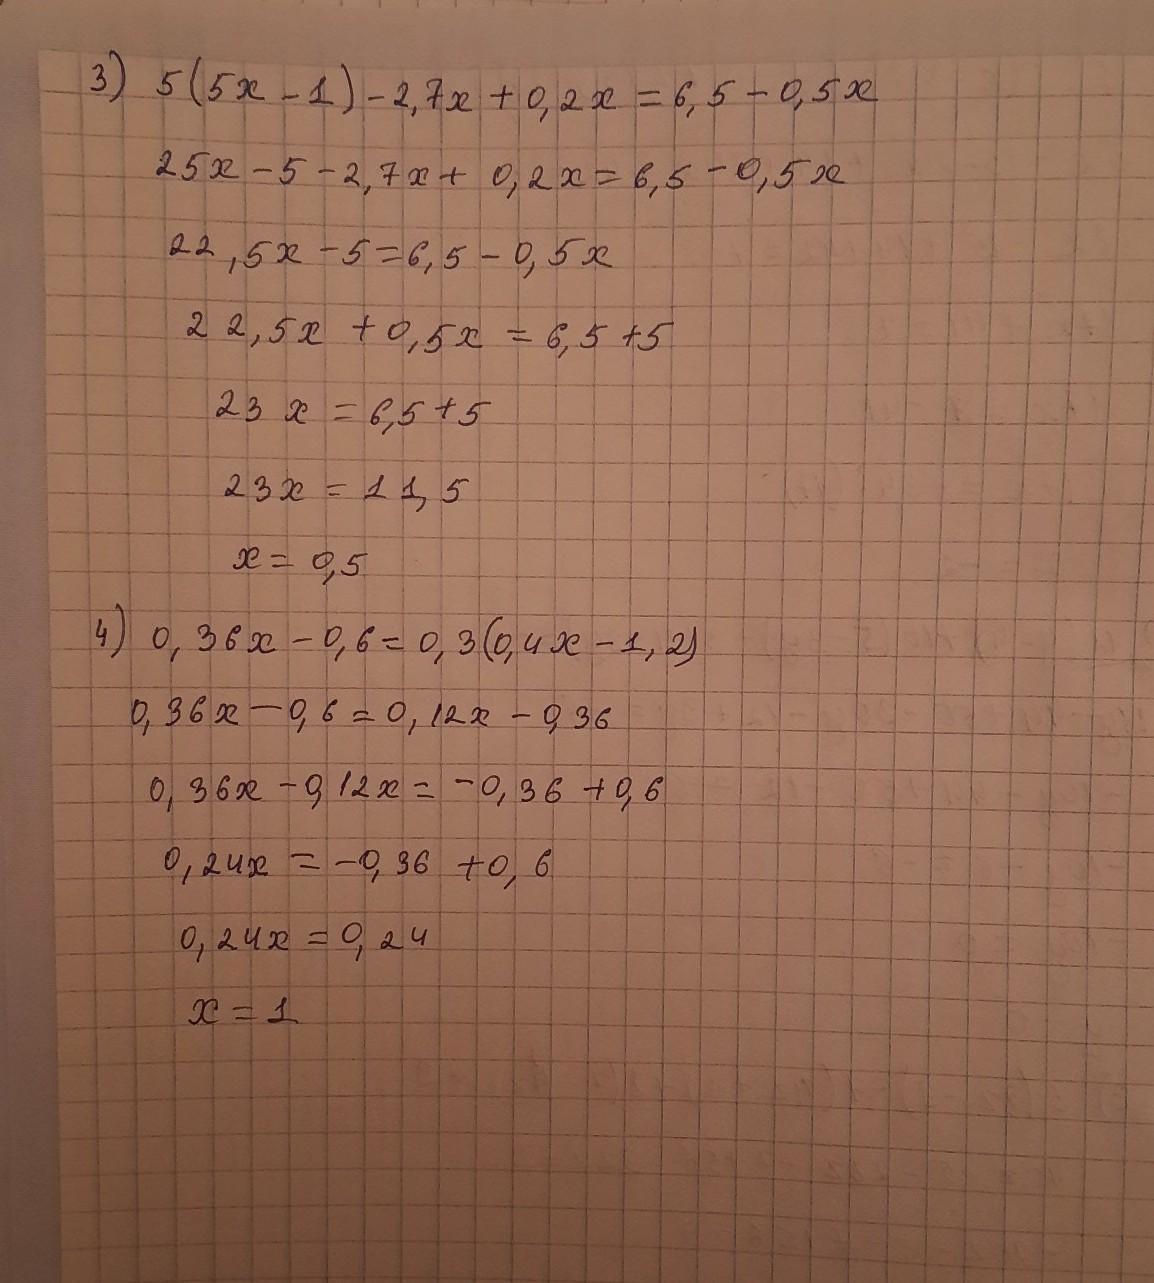 3) 5(5x - 1) - 2,7x + 0,2x = 6,5 - 0,5x
25x - 5 - 2,7x + 0,2x = 6,5 - 0,5x
22,5x - 5 = 6,5 - 0,5x
22,5x + 0,5x = 6,5 + 5
23x = 6,5 + 5
23x = 11,5
x = 0,5
4) 0,36x - 0,6 = 0,3(0,4x - 1,2)
0,36x - 0,6 = 0,12x - 0,36
0,36x - 0,12x = -0,36 + 0,6
0,24x = -0,36 + 0,6
0,24x = 0,24
x = 1